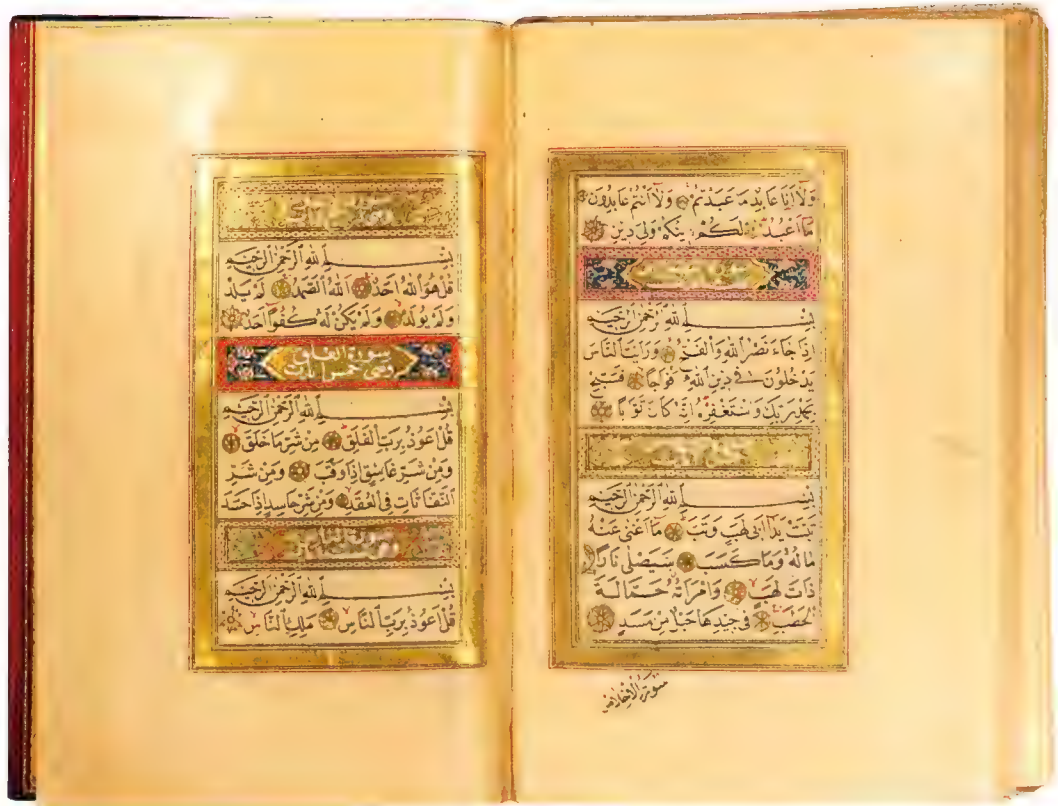 وَلَا اَنَا عَابِدٌ مَا عَبَدْتُمْ وَلَا اَنْتُمْ عَابِدُونَ
مَا اَعْبُدُ لَكُمْ دِينُكُمْ وَلِيَ دِينِ
بِسْمِ اللهِ الرَّحْمٰنِ الرَّحِيمِ
اِذَا جَاءَ نَصْرُ اللهِ وَالْفَتْحُ وَرَاَيْتَ النَّاسَ
يَدْخُلُونَ فِي دِينِ اللهِ اَفْوَاجًا فَسَبِّحْ
بِحَمْدِ رَبِّكَ وَاسْتَغْفِرْهُ اِنَّهُ كَانَ تَوَّابًا
بِسْمِ اللهِ الرَّحْمٰنِ الرَّحِيمِ
تَبَّتْ يَدَا اَبِي لَهَبٍ وَتَبَّ مَا اَغْنٰى عَنْهُ
مَالُهُ وَمَا كَسَبَ سَيَصْلٰى نَارًا
ذَاتَ لَهَبٍ وَامْرَاَتُهُ حَمَّالَةَ
الْحَطَبِ فِي جِيدِهَا حَبْلٌ مِنْ مَسَدٍ
سورة الاخلاص
بِسْمِ اللهِ الرَّحْمٰنِ الرَّحِيمِ
قُلْ هُوَ اللهُ اَحَدٌ اَللهُ الصَّمَدُ لَمْ يَلِدْ
وَلَمْ يُولَدْ وَلَمْ يَكُنْ لَهُ كُفُوًا اَحَدٌ
سورة الفلق
وهي خمس ايات
بِسْمِ اللهِ الرَّحْمٰنِ الرَّحِيمِ
قُلْ اَعُوذُ بِرَبِّ الْفَلَقِ مِنْ شَرِّ مَا خَلَقَ
وَمِنْ شَرِّ غَاسِقٍ اِذَا وَقَبَ وَمِنْ شَرِّ
النَّفَّاثَاتِ فِي الْعُقَدِ وَمِنْ شَرِّ حَاسِدٍ اِذَا حَسَدَ
سورة الناس
بِسْمِ اللهِ الرَّحْمٰنِ الرَّحِيمِ
قُلْ اَعُوذُ بِرَبِّ النَّاسِ مَلِكِ النَّاسِ